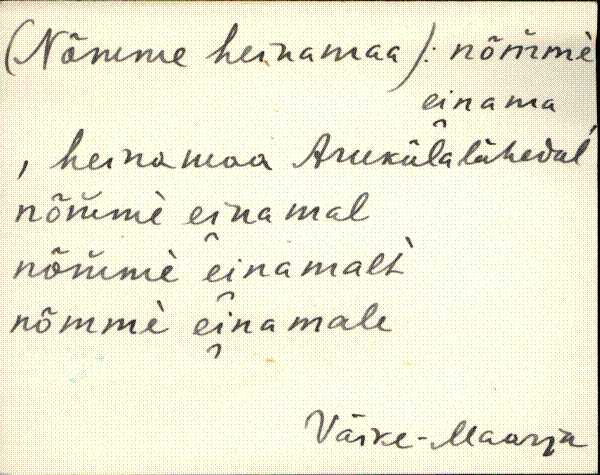 (Nõmme heinamaa): nõm̆mè
einama
, heinamaa Aruküla lähedal
nõm̆mè einamal
nõm̆mè einamalt
nõmmè einamale
Väike-Maarja